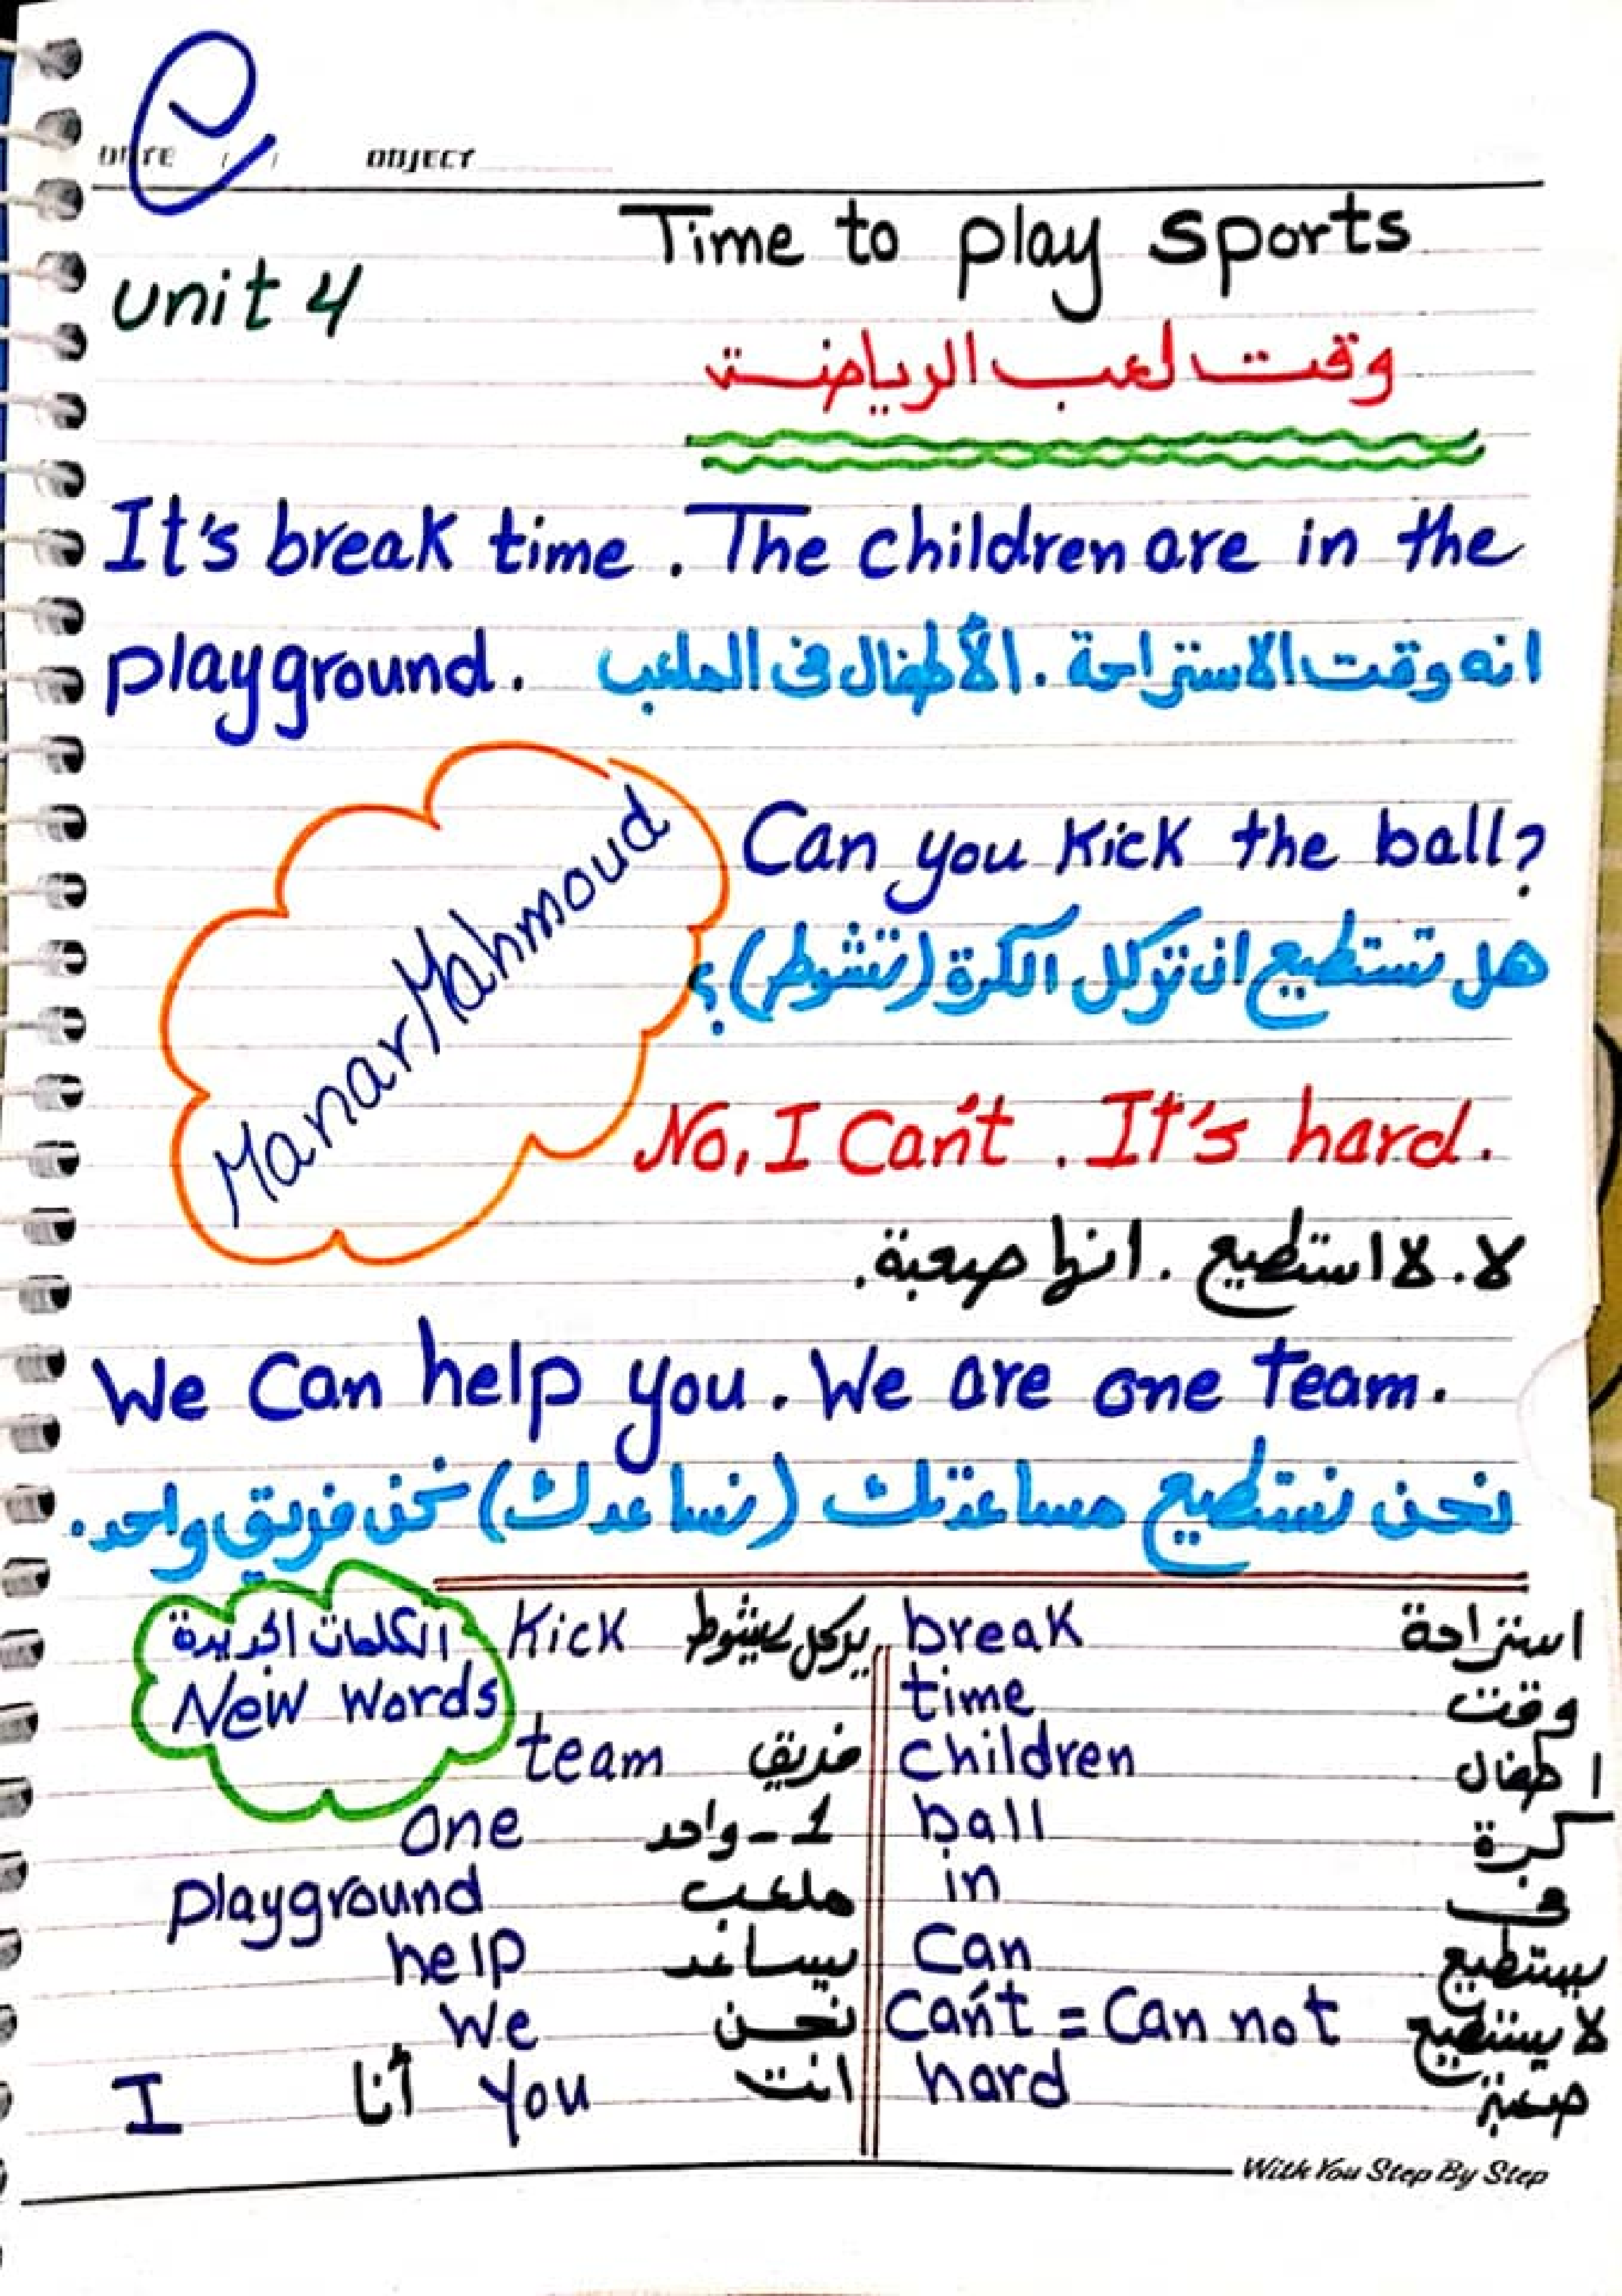 DATE / / OBJECT
Time to play sports
unit 4
وقت لعب الرياضة
It's break time. The children are in the
playground. انه وقت الاستراحة. الأطفال فى الملعب
Manar Mahmoud
Can you kick the ball?
هل تستطيع ان تركل الكرة (تشوط)؟
No, I Can't. It's hard.
لا. لا استطيع. انها صعبة.
We Can help you. We are one team.
نحن نستطيع مساعدتك (نساعدك) نحن فريق واحد.
الكلمات الجديدة
New Words
Kick يركل يشوط break استراحة
time وقت
team فريق children اطفال
one 1- واحد ball كرة
playground ملعب in فى
help يساعد Can يستطيع
We نحن Can't = Can not لا يستطيع
I أنا You انت hard صعبة
With You Step By Step